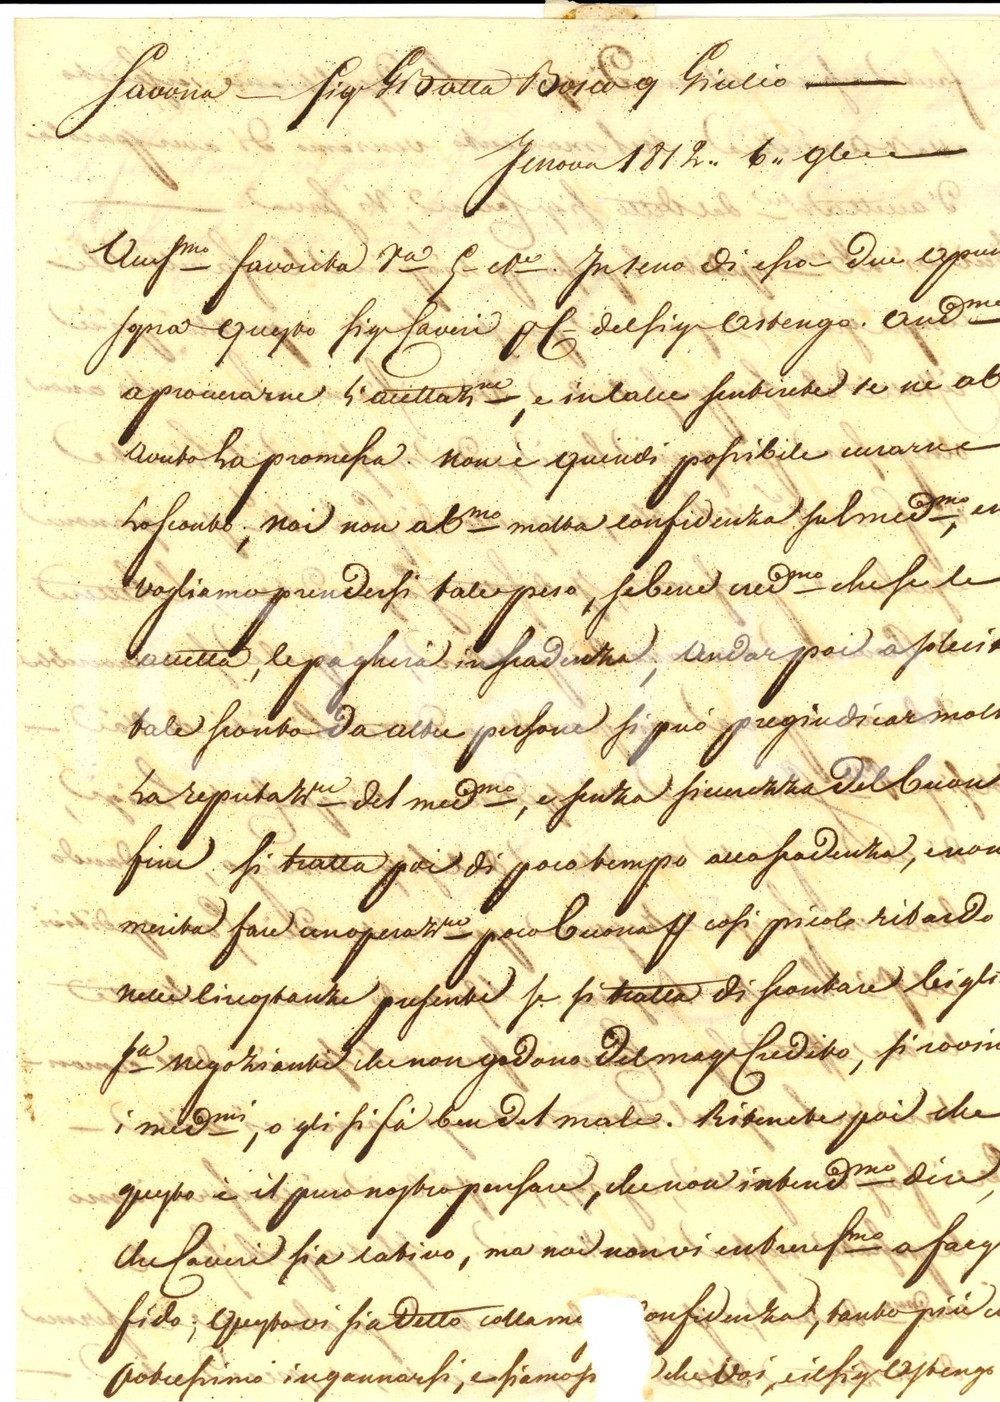 Savona — Sig.r GBatta Bosco q Giulio —
Genova 1812.. 6.. 9bre
favorita v.a In seno di essa due apun
sopra questo Sig.r Saveri del Sig.r Astengo. And.mo
a procurarne l'acettaz.ne, e in calce sentirete se ne ab
avuto la promessa. Non è quindi possibile curarne
lo sconto; noi non ab.mo molta confidenza sul med.mo, e
vogliamo prendersi tale peso, sebene cred.mo che se le
acetta, le pagherà in scadenza; andar poi a solecit
tale sconto da altre persone si può pregiudicar molt
la reputaz.ne del med.mo, e senza sicurezza del buon
fine si tratta poi di poco tempo alla scadenza, e non
merita fare un operaz.ne poco buona p cosi picolo ritardo
nelle circostanze presenti se si tratta di scontare biglì
s.a negozianti che non godono del mag.r Credito, si rovin
i med.mi, o gli si fà ben del male. Ritenete poi che
questo è il puro nostro pensare, che non intend.mo dire,
che Saveri sia cativo, ma noi non vi entreress.mo a far
fido; questo vi sia detto colla confidenza, tanto più
potressimo ingannarsi, e siamo che Voi, e il Sig.r Astengo